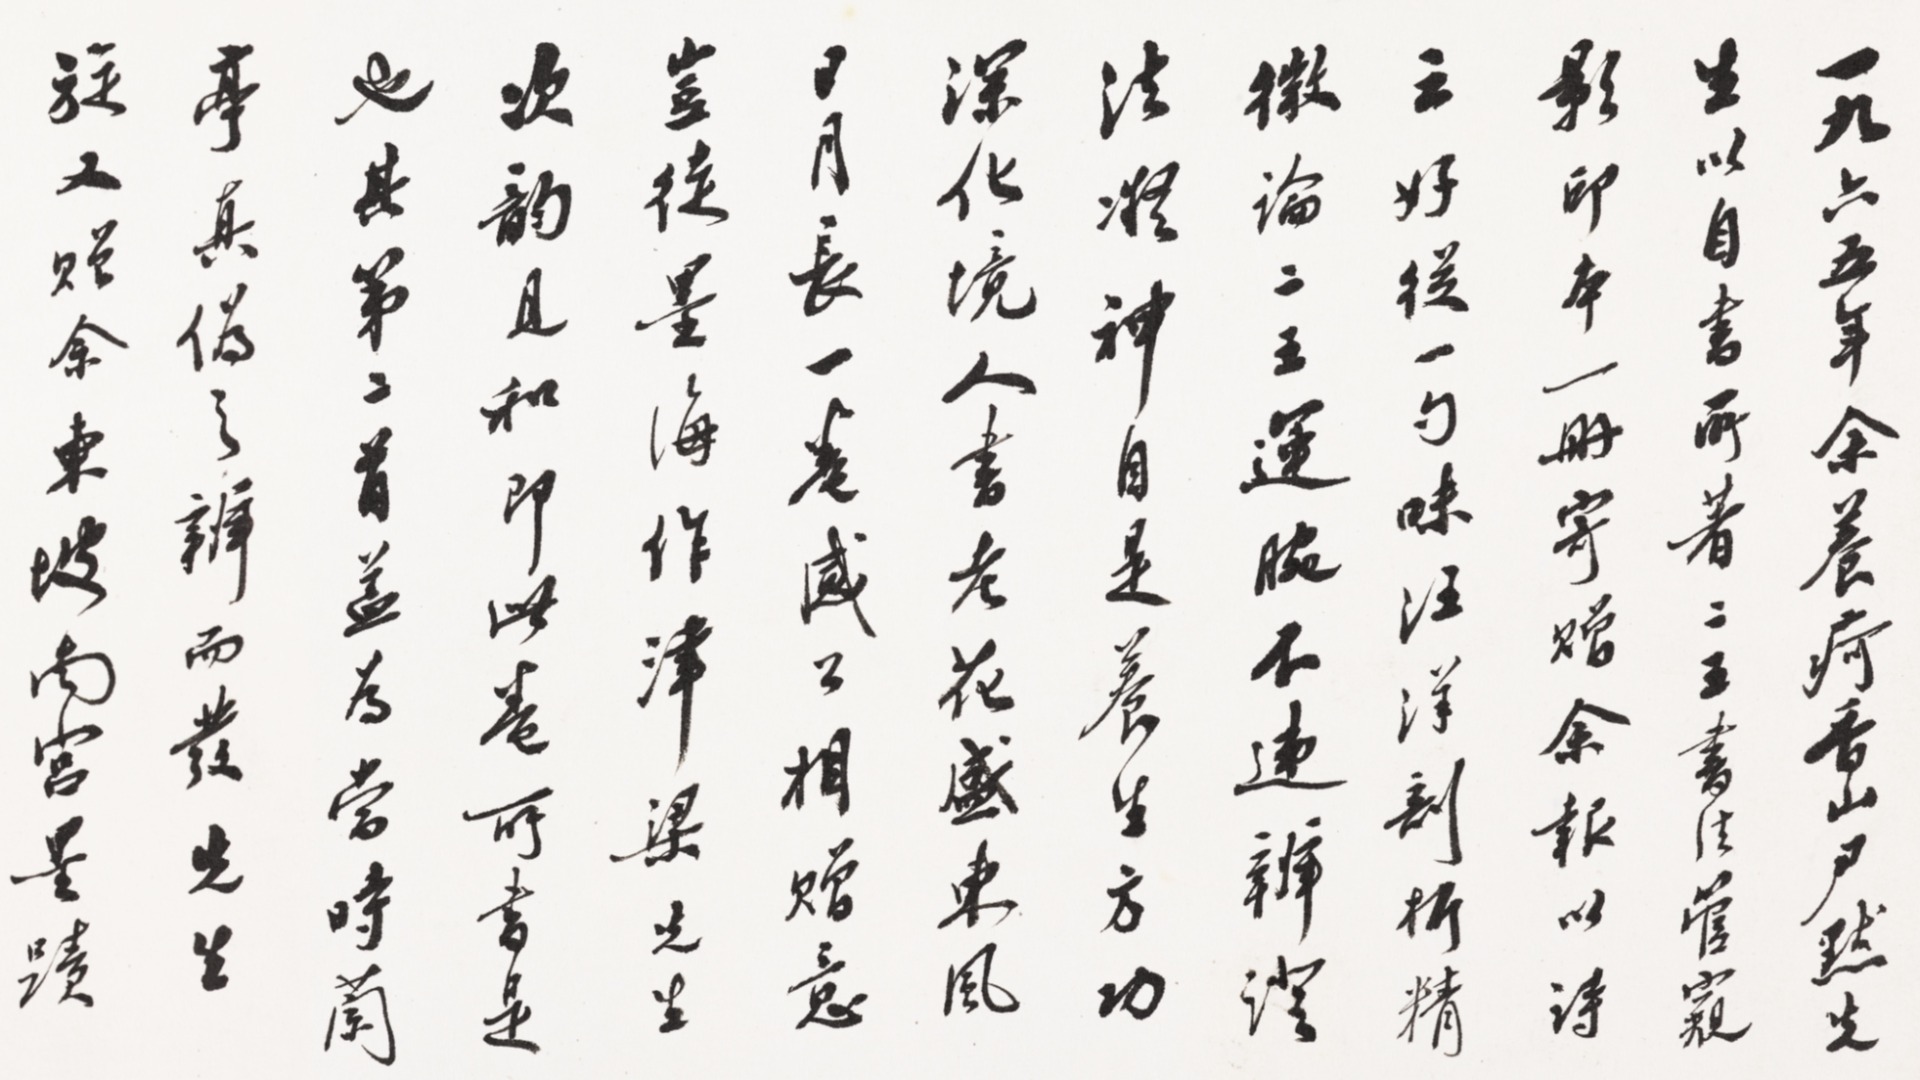 一九六五年余養疴香山尹默先
生以自書所著二王書法管窺
影印本一冊寄贈余報以詩
云好從一勺味汪洋剖析精
微論二王運腕不違辯證
法凝神自是養生方功
深化境人書老花盛東風
日月長一卷感公相贈意
豈徒墨海作津梁先生
次韵見和即此卷所書是
也其第二首蓋為當時蘭
亭真偽之辯而發先生
旋又贈余東坡南宮墨蹟